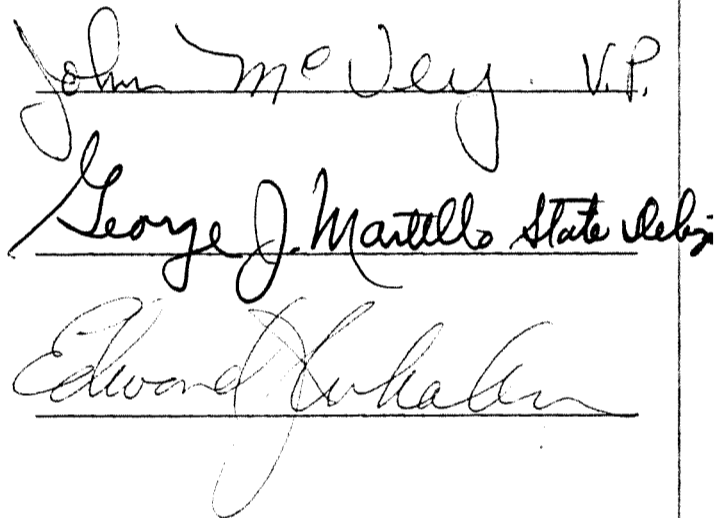 John McVey. V.P.
George J. Martello State
Edward J.